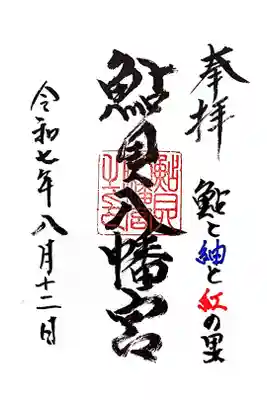 奉拝
鮎と紬と紅の里
鮎貝八幡宮
令和七年八月十二日